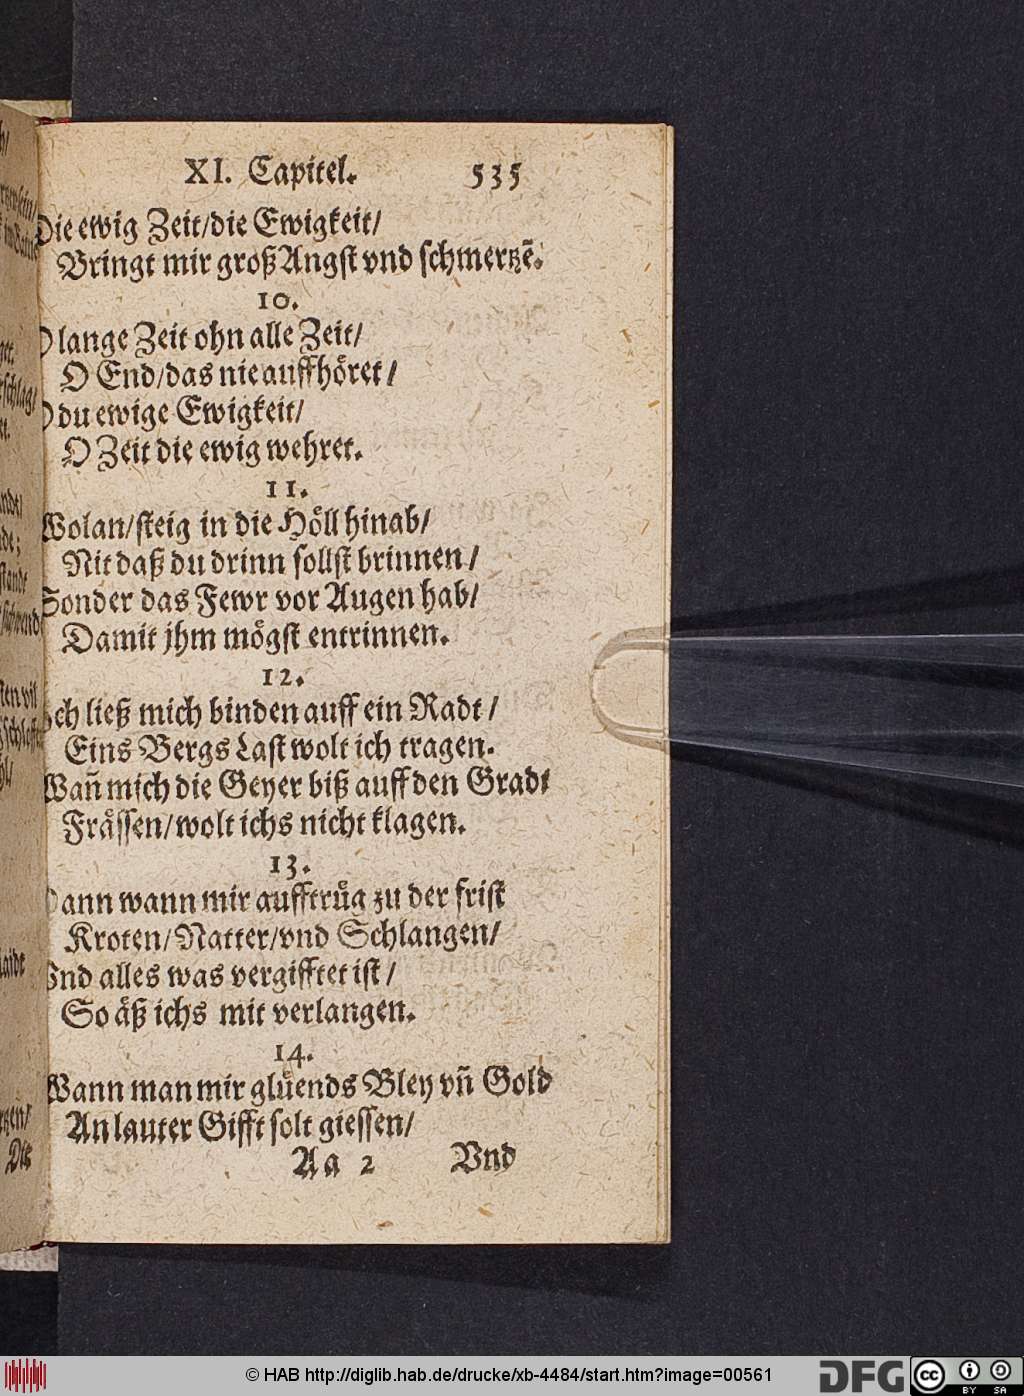 XI. Capitel. 535
Die ewig Zeit/die Ewigkeit/
Bringt mir groß Angst vnd schmertzẽ.
10.
O lange Zeit ohn alle Zeit/
O End/das nie auffhöret/
O du ewige Ewigkeit/
O Zeit die ewig wehret.
11.
Wolan/steig in die Höll hinab/
Nit daß du drinn sollst brinnen/
Sonder das Fewr vor Augen hab/
Damit jhm mögst entrinnen.
12.
Ich ließ mich binden auff ein Radt/
Eins Bergs Last wolt ich tragen.
Wañ mich die Geyer biß auff den Gradt
Frässen/wolt ichs nicht klagen.
13.
Dann wann mir aufftrüg zu der frist
Kroten/Natter/vnd Schlangen/
Vnd alles was vergifftet ist/
So äß ichs mit verlangen.
14.
Wann man mir glüends Bley vñ Gold
An lauter Gifft solt giessen/
Aa 2 Vnd
© HAB http://diglib.hab.de/drucke/xb-4484/start.htm?image=00561
DFG
cc BY SA